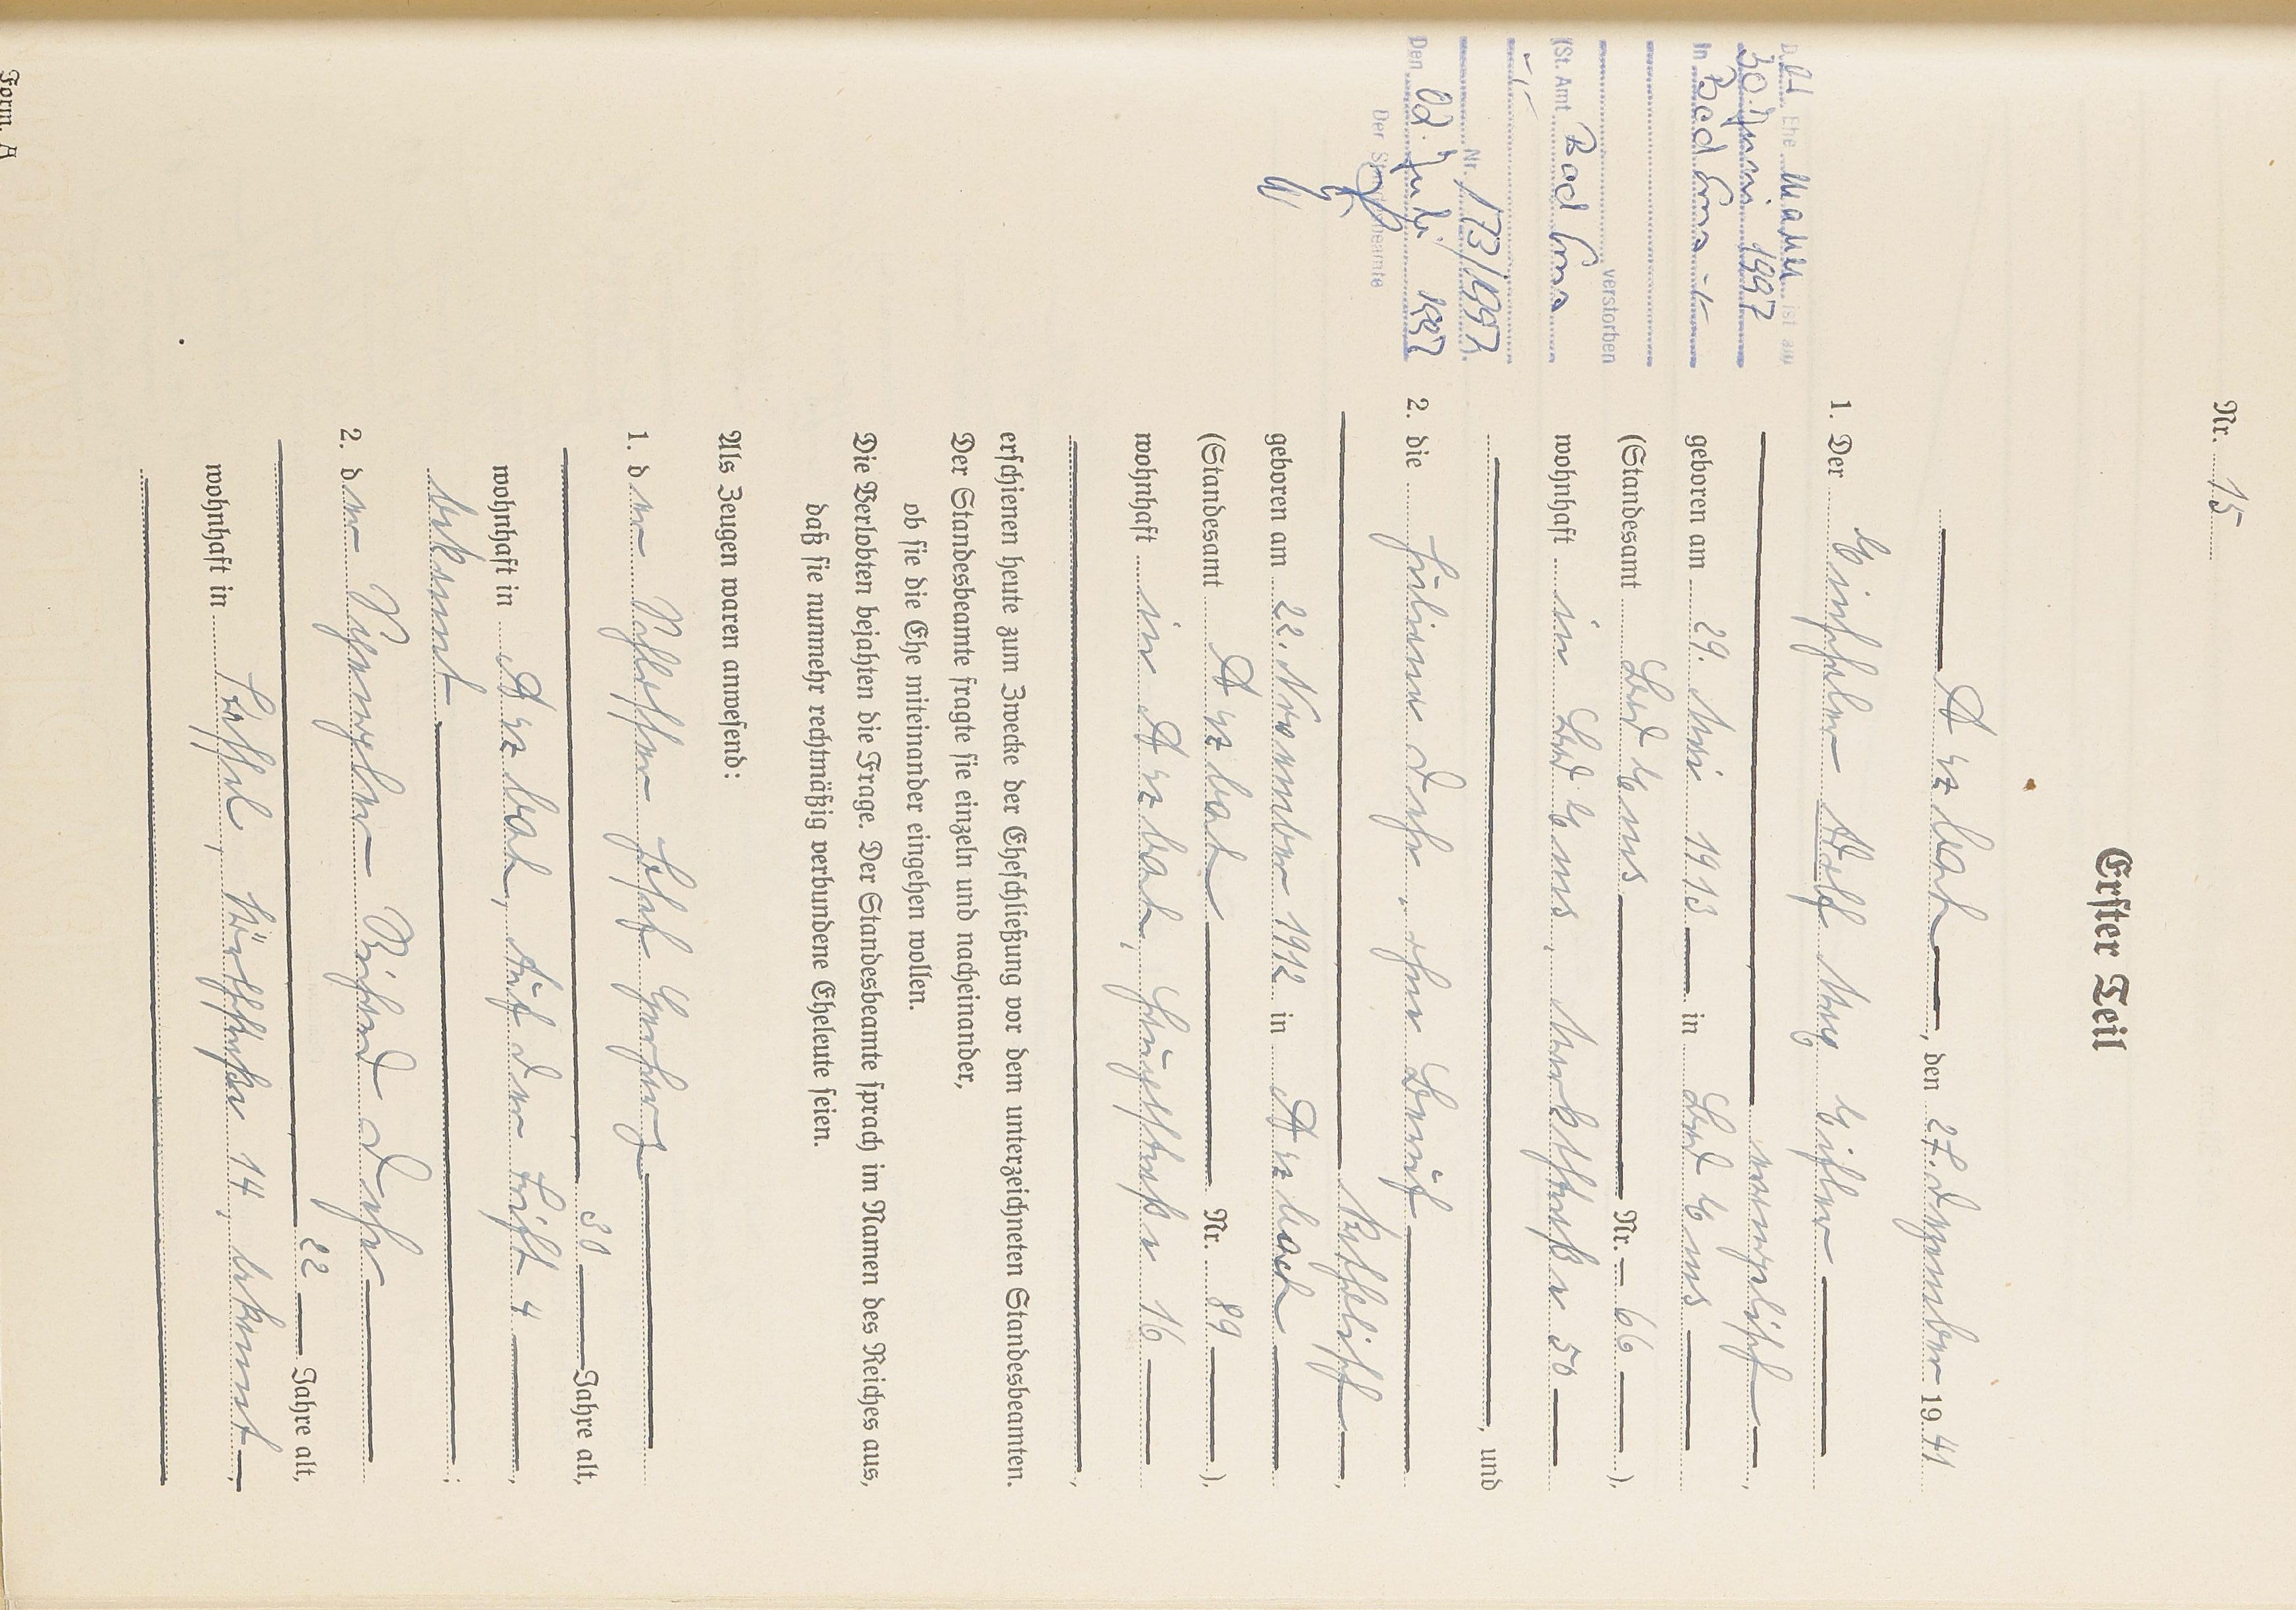 Nr. 15
Erster Teil
Arzbach, den 27. Dezember 1941
1. Der Einschaler Adolf Aug Eisler
evangelisch,
geboren am 29. Mai 1913 in Bad Ems
(Standesamt Bad Ems Nr. 66),
wohnhaft in Bad Ems, Marktstraße 50
, und
2. die Juliana Dehe, ohne Beruf
katholisch,
geboren am 22. November 1912 in Arzbach
(Standesamt Arzbach Nr. 89),
wohnhaft in Arzbach, Hauptstraße 16
,
erschienen heute zum Zwecke der Eheschließung vor dem unterzeichneten Standesbeamten.
Der Standesbeamte fragte sie einzeln und nacheinander,
ob sie die Ehe miteinander eingehen wollen.
Die Verlobten bejahten die Frage. Der Standesbeamte sprach im Namen des Reiches aus,
daß sie nunmehr rechtmäßig verbundene Eheleute seien.
Als Zeugen waren anwesend:
1. der Josef
30 Jahre alt,
wohnhaft in Arzbach, Auf der Trift 4,
bekannt;
2. der Richard Dehe
22 Jahre alt,
wohnhaft in Kassel, 14, bekannt.
D Ehe Mann ist am
30. Juni 1997
in Bad Ems -/-
verstorben
(St. Amt Bad Ems
-/-
Nr. 173/1997).
Den 02. Juli 1997
Der Standesbeamte
Form. A